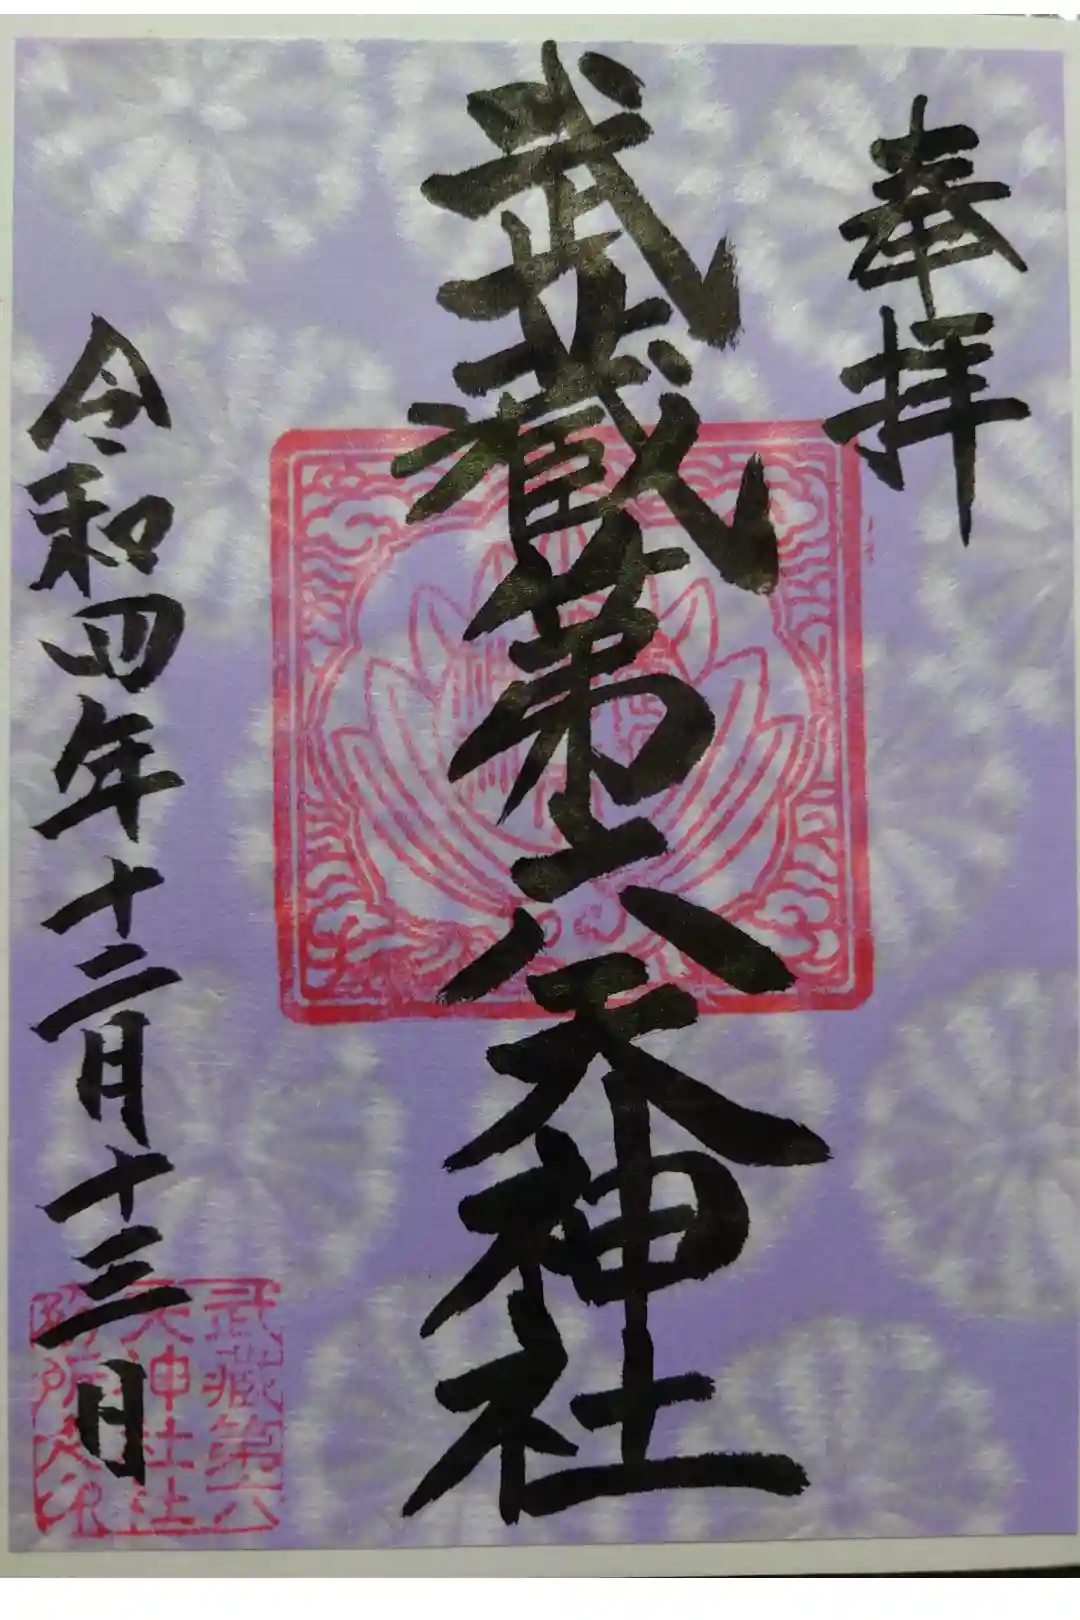 奉拝
武蔵第六天神社
令和四年十二月十三日
武蔵第六
天神社社
務所之印